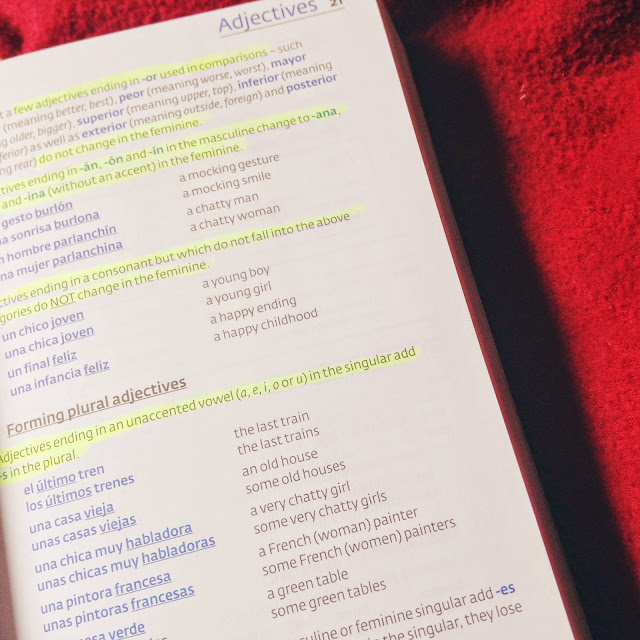 Adjectives 21
a few adjectives ending in -or used in comparisons – such
(meaning better, best), peor (meaning worse, worst), mayor
older, bigger), superior (meaning upper, top), inferior (meaning
as well as exterior (meaning outside, foreign) and posterior
rear) do not change in the feminine.
ending in -án, -ón and -ín in the masculine change to -ana,
and -ina (without an accent) in the feminine.
gesto burlón a mocking gesture
sonrisa burlona a mocking smile
hombre parlanchín a chatty man
mujer parlanchina a chatty woman
ending in a consonant but which do not fall into the above
do NOT change in the feminine.
un chico joven a young boy
una chica joven a young girl
un final feliz a happy ending
una infancia feliz a happy childhood
Forming plural adjectives
Adjectives ending in an unaccented vowel (a, e, i, o or u) in the singular add
-s in the plural.
el último tren the last train
los últimos trenes the last trains
una casa vieja an old house
unas casas viejas some old houses
una chica muy habladora a very chatty girl
unas chicas muy habladoras some very chatty girls
una pintora francesa a French (woman) painter
unas pintoras francesas some French (women) painters
verde a green table
some green tables
or feminine singular add -es
the singular, they lose